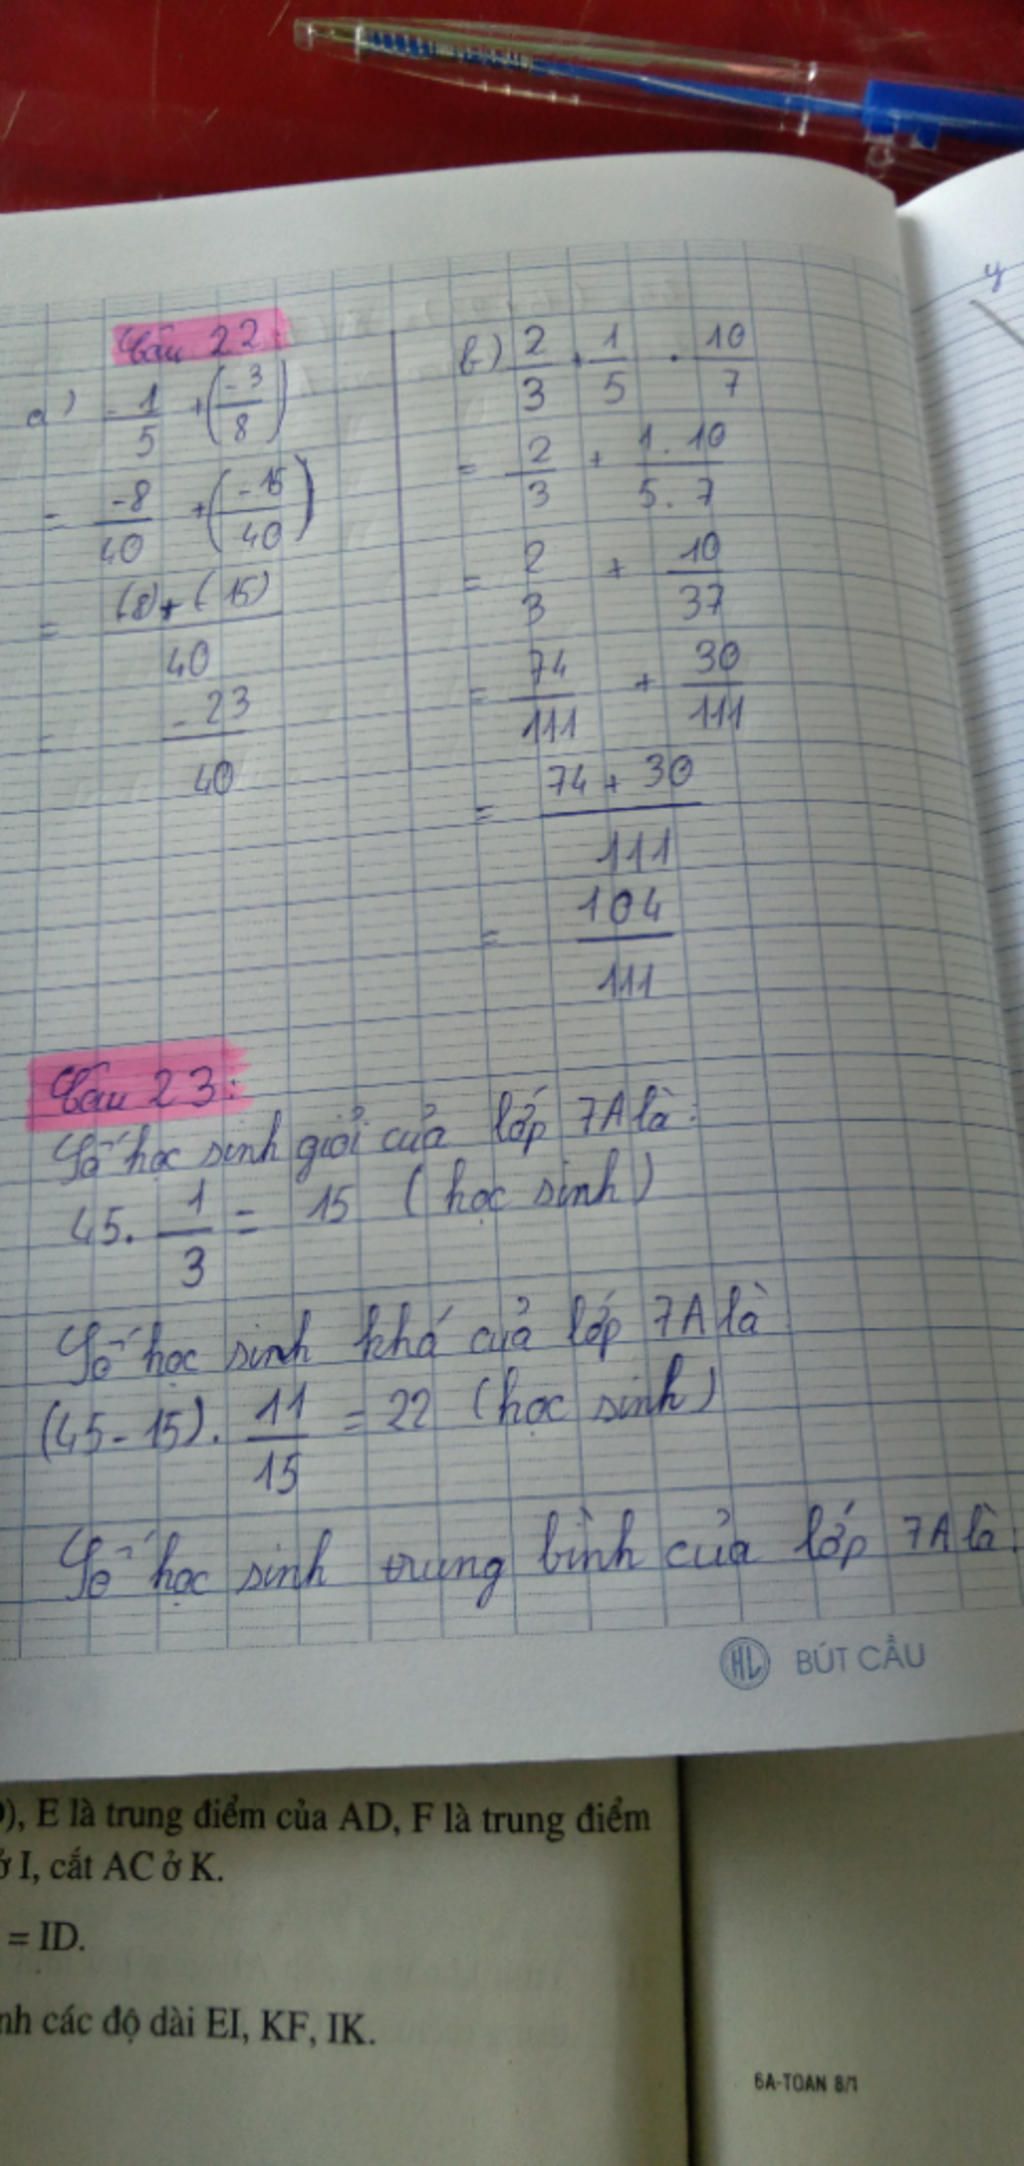 Câu 22:
a) -1/5 + (-3/8)
= -8/40 + (-15/40)
= (8)+(15)/40
= -23/40
b) 2/3 + 1/5 . 10/7
= 2/3 + 1.10/5.7
= 2/3 + 10/37
= 74/111 + 30/111
= 74+30/111
= 104/111
Câu 23:
Số học sinh giỏi của lớp 7A là:
45. 1/3 = 15 (học sinh)
Số học sinh khá của lớp 7A là
(45-15). 11/15 = 22 (học sinh)
Số học sinh trung bình của lớp 7A là:
HL BÚT CẦU
y
), E là trung điểm của AD, F là trung điểm
ở I, cắt AC ở K.
= ID.
nh các độ dài EI, KF, IK.
6A-TOAN 8/1